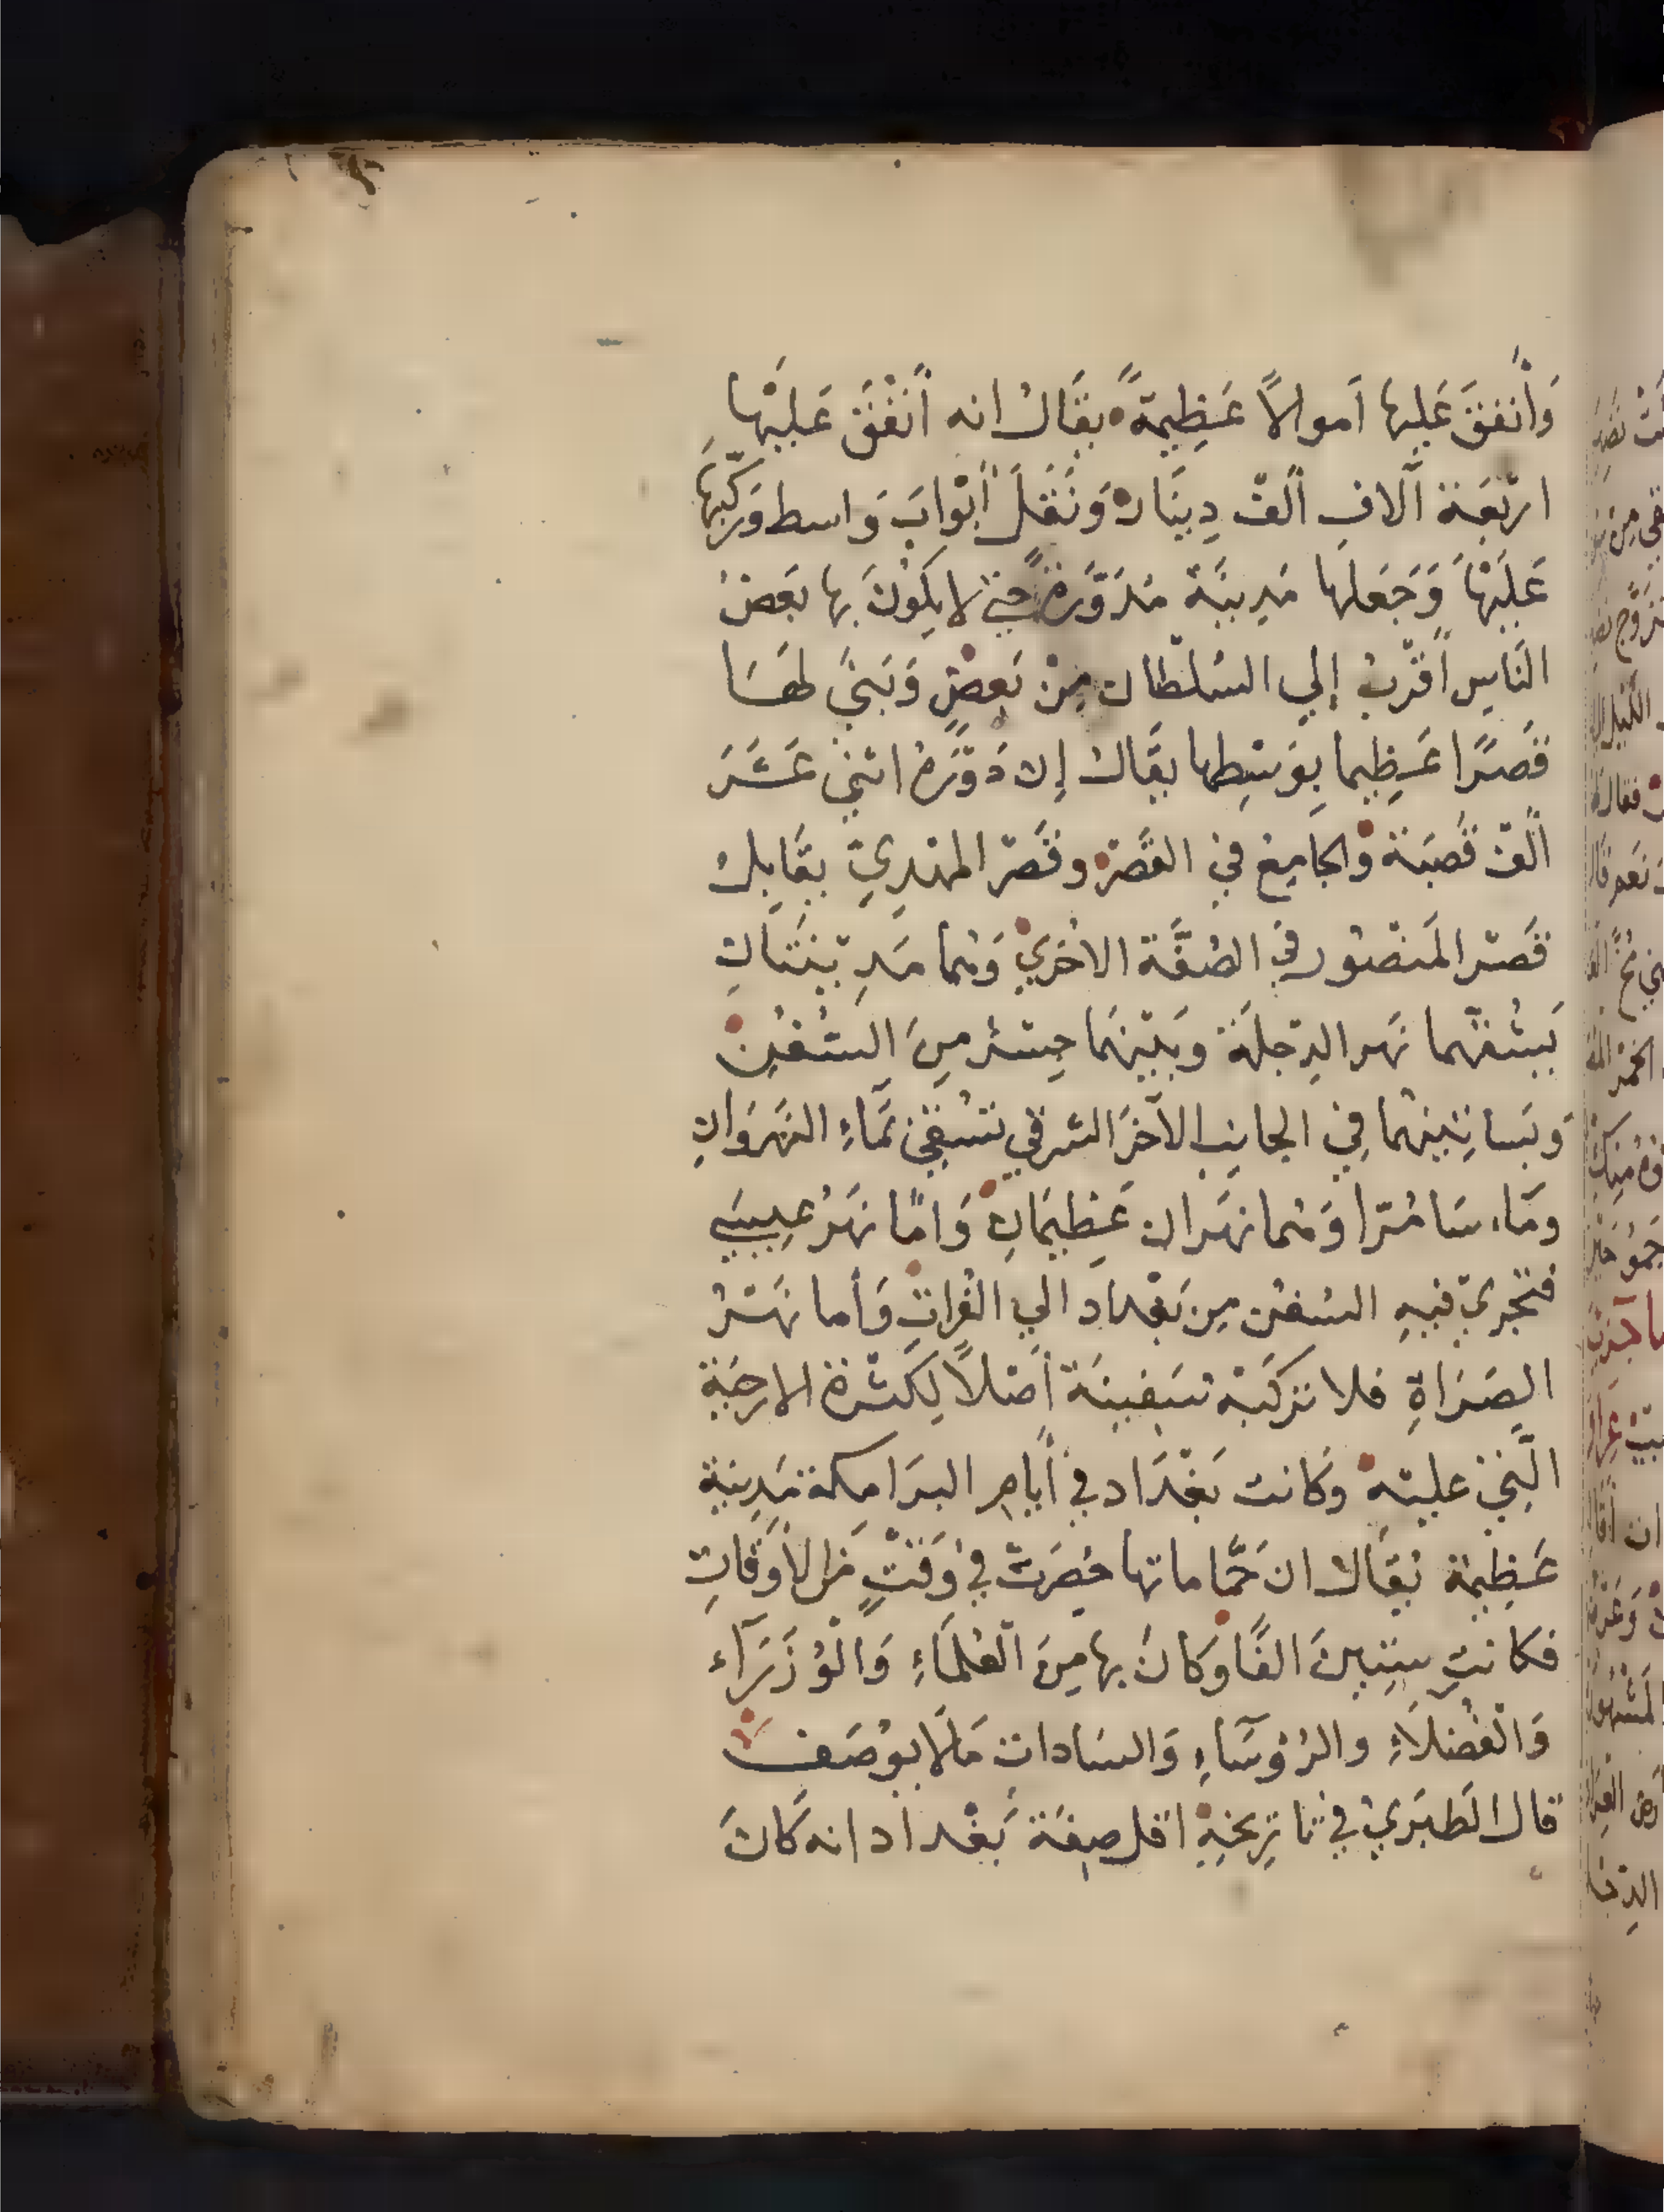 وَأنفقَ عَلِيها اَموالاً عَظِيمَةً يقَال انه أنْفَقَ عَليْها
ارْبَعَة آلاف ألف دِينَار وَنَقَلَ أبْوابَ وَاسط وَرَكّبَهَا
عَلَيْهَا وَجَعَلَها مَدِينَة مُدَوَّرةً حتي لا يكُونَ بها بَعضُ
النَاسِ أقرْبُ إلي السُلطان مِنْ بَعضٍ وَبَنَي لهَا
قَصرًا عَظِيما بِوَسَطِها يقَال إن دَوْرَهُ اثني عَشَرَ
ألف قَصَبَة والجامِعُ في القَصْر وقَصْر المهْدِيّ يقَابِل
قصْر المَنصُور في الضفَّة الاخري وَهُما مَدِينَتَانِ
يَشُقُّهما نَهر الدِجلَة وبَيْنَهَما جِسْر مِنَ السُفُن
وَبَساتِينهُما فِي الجانِب الآخَر الشرقي تسْقي بمَاءِ النَهرَوَانِ
ومَاء سَامُرّا وَهُما نهَران عَظِيمَان وَامّا نَهَرُ عِيسَي
فَتَجْرِي فيهِ السُفن مِن بَغْداد الي الفُراتِ وَأما نَهْرُ
الصَرَاةِ فلا تركَبهْ سَفِينَة أصْلاً لِكَثْرة الارحَيَةِ
الَّتي عليْه وكَانت بَغْدَاد في أيامِ البرَامكة مَدِينَة
عَظِيمَة يُقَال ان حَمَّاماتها حُصِرَتْ في وَقْتٍ مَن الأوقَاتِ
فكانتِ سِتينَ الفًا وَكانَ بها مِنَ العُلمَاءِ وَالوُزَرَآء
وَالفُضَلاَءِ والرُؤسَآءِ وَالسَاداتِ مَا لا يوُصَف
قال الطَبَرِيُ في تاريخهِ اقل صِفَة بَغْداد انه كَانَ